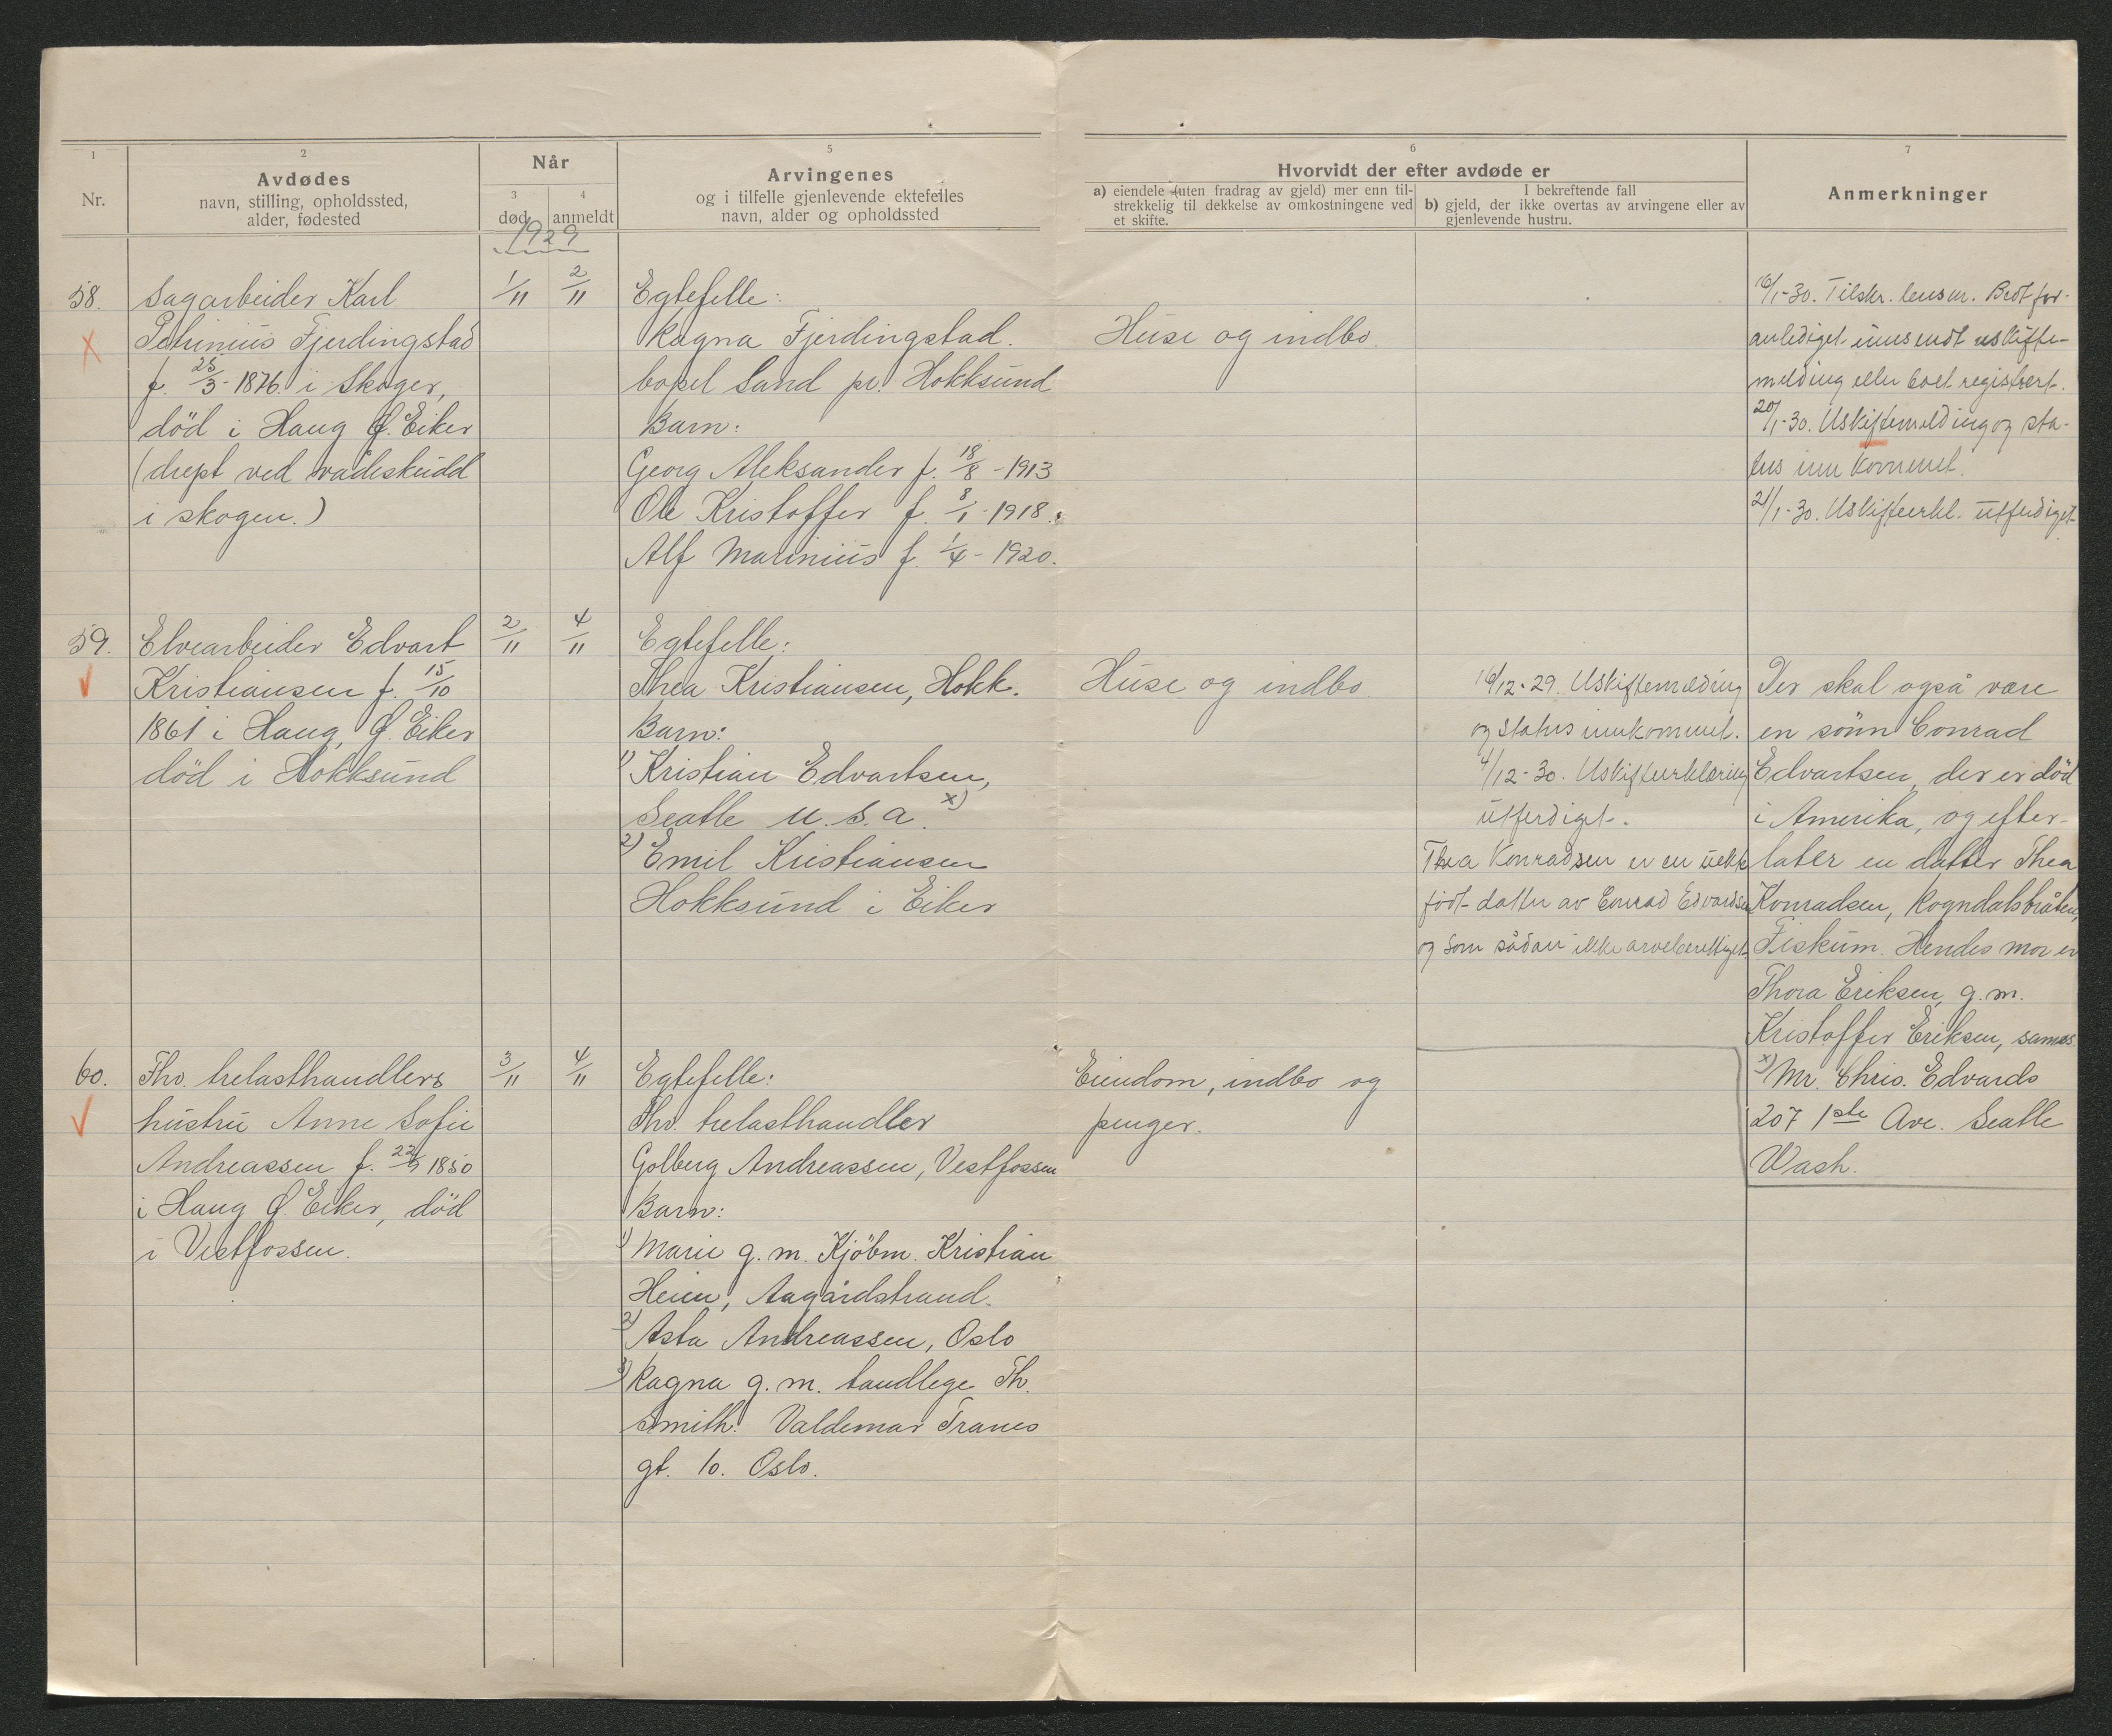 1
Nr.
2
Avdødes
navn, stilling, opholdssted,
alder, fødested
Når
3
død
4
anmeldt
1929
5
Arvingenes
og i tilfelle gjenlevende ektefelles
navn, alder og opholdssted
6
Hvorvidt der efter avdøde er
a) eiendele (uten fradrag av gjeld) mer enn til-
strekkelig til dekkelse av omkostningene ved
et skifte.
I bekreftende fall
b) gjeld, der ikke overtas av arvingene eller av
gjenlevende hustru.
7
Anmerkninger
58.
X
Sagarbeider Karl
Petrinius Fjerdingstad
f. 25/3-1876 i Skoger,
död i Haug Ø. Eiker
(drept ved vådeskudd
i skogen.)
1/11
2/11
Egtefelle:
Ragna Fjerdingstad.
bopel Sand pr. Hokksund
Barn:
Georg Aleksander f. 18/8-1913
Ole Kristoffer f. 8/1-1918.
Alf Marinius f. 1/4-1920.
Huse og indbo.
16/1-30. Tilskr. lensm. Bedt for-
anlediget innsendt uskifte-
melding eller boet registrert.
20/1-30. Uskiftemelding og sta-
tus inn kommet.
21/1-30. Uskifteerkl. utferdiget
59.
Elvearbeider Edvart
Kristiansen f. 15/10
1861 i Haug, Ø. Eiker
död i Hokksund
2/11
4/11
Egtefelle:
Thea Kristiansen, Hokk.
Barn:
1) Kristian Edvartsen,
Seatle U.S.A. x)
2) Emil Kristiansen
Hokksund i Eiker
Huse og indbo
16/12-29. Uskiftemelding
og status innkommet.
4/12-30. Uskifteerklæring
utferdiget.
Thea Konradsen er en uekte
født datter av Conrad Edvardsen
og som sådan ikke arveberettiget.
Der skal også være
en sönn Conrad
Edvartsen, der er död
i Amerika, og efter-
later en datter Thea
Konradsen, Rogndalsbråten,
Fiskum. Hendes mor er
Thora Eriksen, g. m.
Kristoffer Eriksen, sames.
x) Mr. Chris. Edvards
207 1ste Ave. Seatle
Wash.
60.
Fhv. trelasthandlers
hustru Anne Sofie
Andreassen f. 22/9 1850
i Haug Ø. Eiker, död
i Vestfossen.
3/11
4/11
Egtefelle:
Fhv. trelasthandler
Golberg Andreassen, Vestfossen
Barn:
1) Marie g. m. Kjöbm. Kristian
Heien, Aagårdstrand.
2) Asta Andreassen, Oslo
3) Ragna g. m. tandlege Th.
Smith. Valdemar Tranes
gt. 10. Oslo.
Eiendom, indbo og
penger.